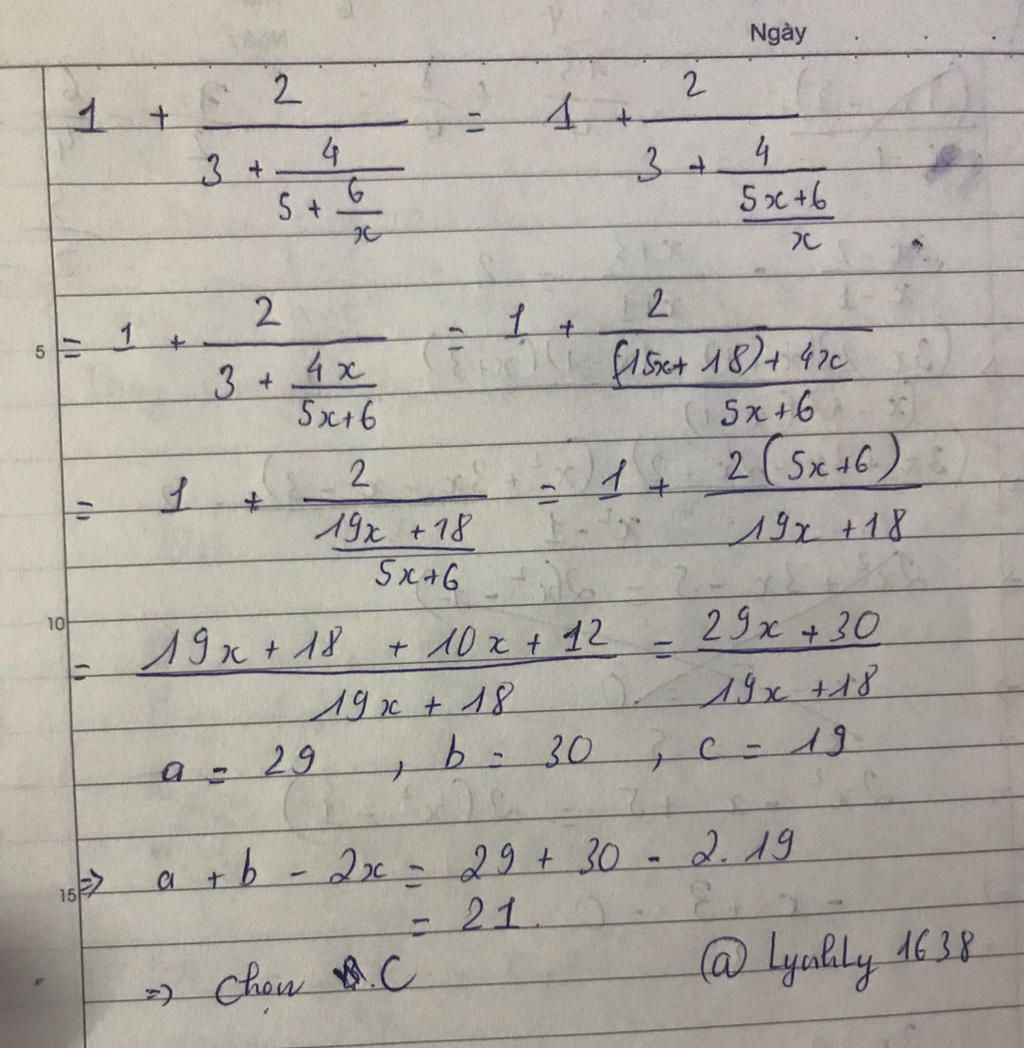 Ngày
1 + 2/(3 + 4/(5 + 6/x)) = 1 + 2/(3 + 4/((5x+6)/x))
5
= 1 + 2/(3 + 4x/(5x+6)) = 1 + 2/(((15x+18)+4x)/(5x+6))
= 1 + 2/((19x+18)/(5x+6)) = 1 + 2(5x+6)/(19x+18)
10
= (19x+18 + 10x+12)/(19x+18) = (29x+30)/(19x+18)
a = 29 , b = 30 , c = 19
15
=> a + b - 2x = 29 + 30 - 2.19
= 21.
=> Chọn C